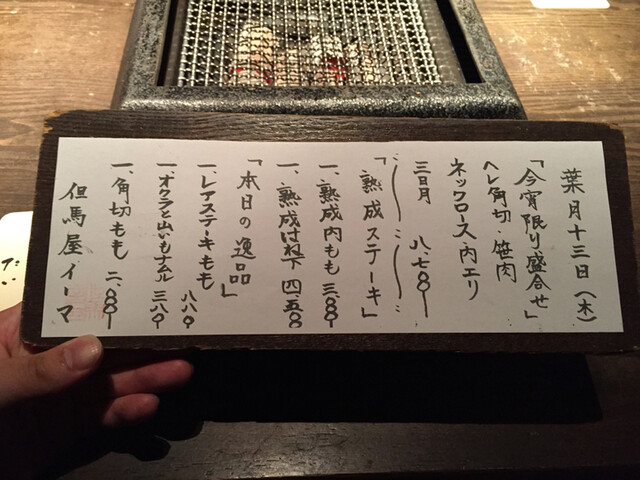 葉月十三日(木)
「今宵限り盛合せ」
ヘレ角切・笹肉
ネックロース・内エリ
三日月 八、七〇〇
「熟成ステーキ」
一、熟成内もも 三、八〇〇
一、熟成はね下 四、五〇〇
「本日の逸品」
一、レアステーキもも 八八〇
一、オクラと山いもナムル 三八〇
一、角切もも 二、八〇〇
但馬屋イーマ